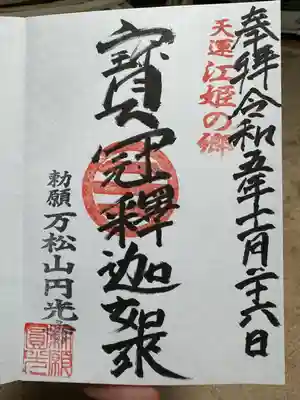 奉拝令和五年十一月二十六日
天運江姫の郷
寶冠釋迦如来
勅願万松山円光寺